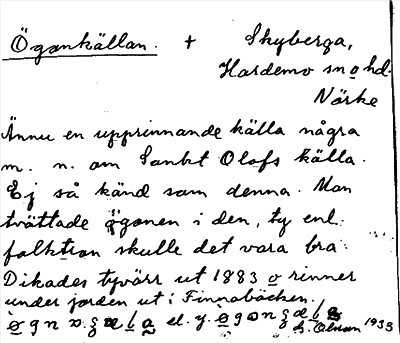 Ögonkällan. + Skyberga,
Hardemo sn o hd.
Närke
Ännu en upprinnande källa några
m. n. om Sankt Olofs källa.
Ej så känd som denna. Man
tvättade ögonen i den, ty enl.
folktron skulle det vara bra.
Dikades tyvärr ut 1883 o rinner
under jorden ut i Finnabäcken.
1933